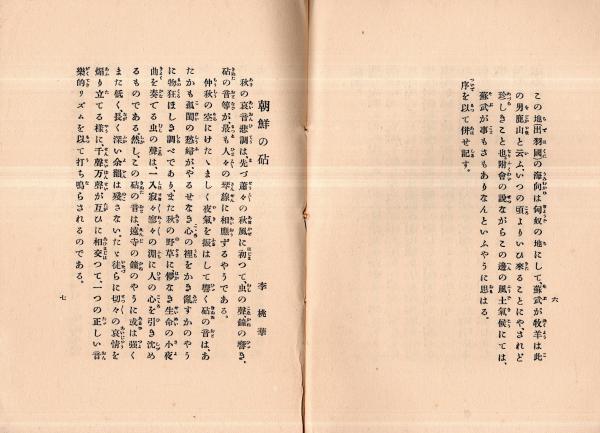 この地出羽國の海向は匈奴の地にして、蘇武が牧羊は此
の男鹿山と云ふ、いつの頃よりいひ來ることにや、されど
珍しきこと也附會の説ながらこの邊の風土氣候にては、
蘇武が事もさもありなんといふやうに思はる。
序を以て併せ記す。
六
朝鮮の砧
李桃華
秋の哀音悲調は、先づ蕭々の秋風に初つて、虫の聲鐘の響き、
砧の音等が最も人々の琴線に相應ずるやうである。
仲秋の空にけたゝましく夜氣を振はして響く砧の音は、あ
たかも孤閨の愁婦がやるせなき心の裡をかき亂すかのやう
に物狂ほしき調べであり、また秋の野草に儚なき生命の小夜
曲を奏でる虫の聲は、一入寂々寥々の淵に人の心を引き沈め
るものである然し、この砧の音は、遠寺の鐘のやうに或は强く
また低く、長く深い余韻は殘さない。たゞ徒らに切々の哀情を
煽り立てる樣に、千聲万聲が互ひに相交つて、一つの正しい音
樂的リズムを以て打ち鳴らされるのである。
七